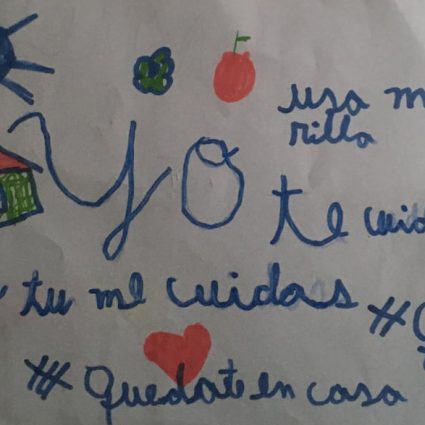 usa m
rilla
Yo te cuid
tu me cuidas #
# Quedate en casa